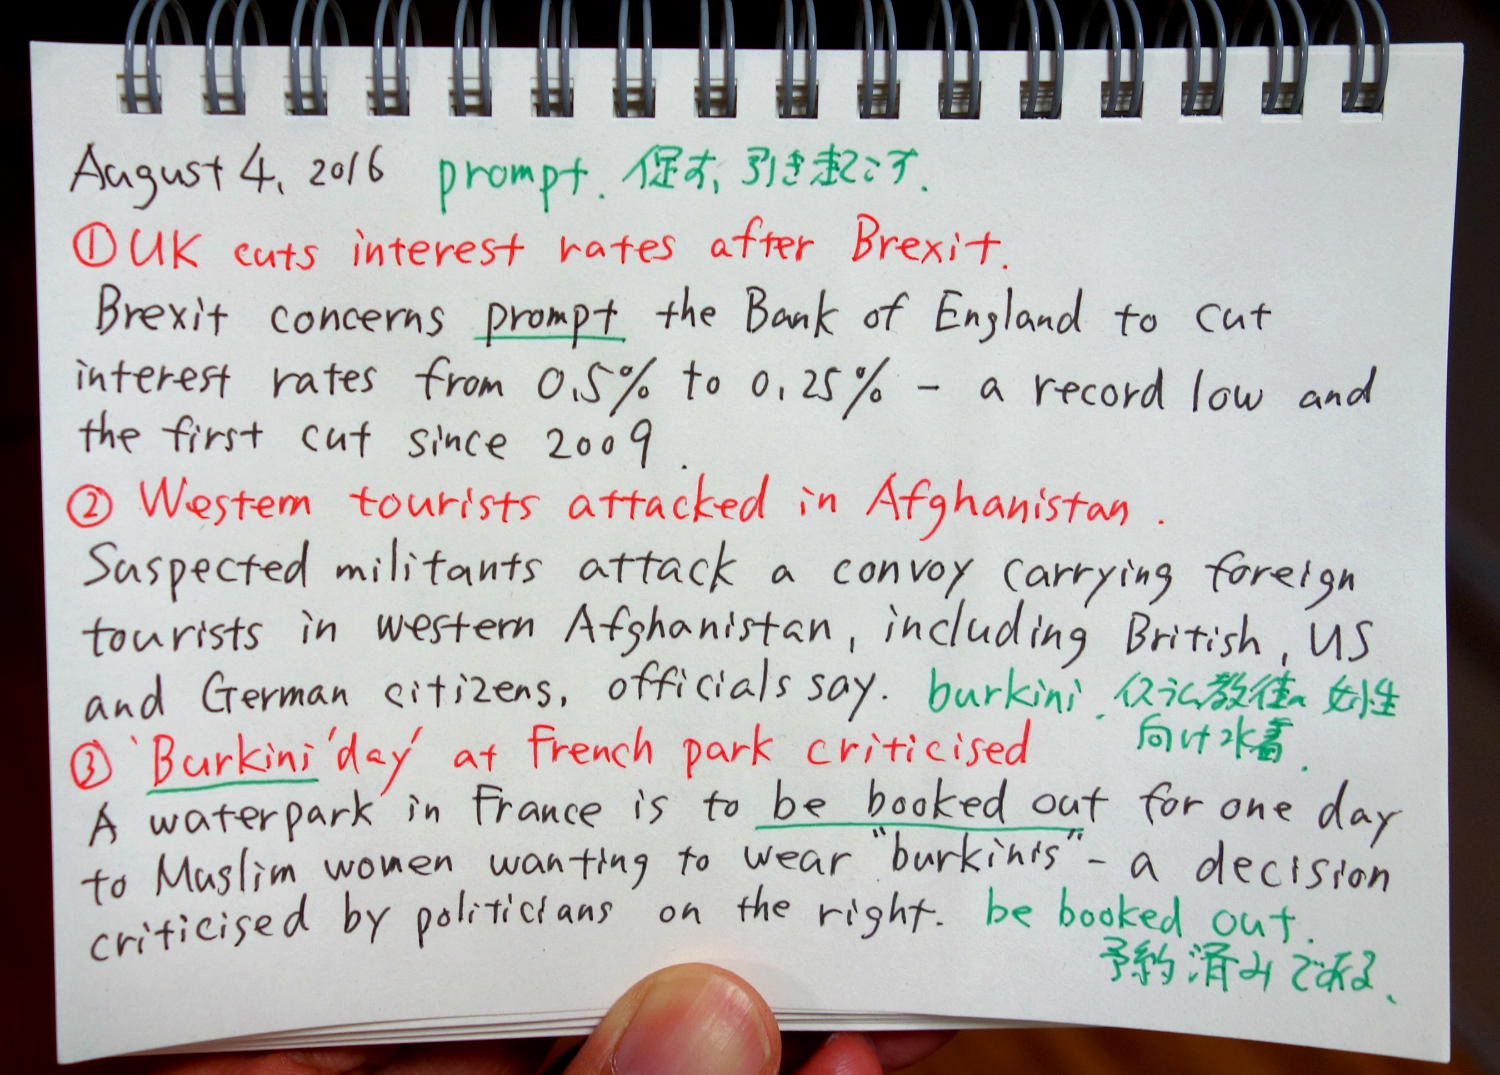 August 4, 2016 prompt. 促す, 引き起こす.
①UK cuts interest rates after Brexit.
Brexit concerns prompt the Bank of England to cut
interest rates from 0.5% to 0.25% - a record low and
the first cut since 2009.
② Western tourists attacked in Afghanistan.
Suspected militants attack a convoy carrying foreign
tourists in western Afghanistan, including British, US
and German citizens, officials say. burkini. イスラム教徒の女性
向け水着.
③ 'Burkini 'day' at French park criticised
A waterpark in France is to be booked out for one day
to Muslim women wanting to wear "burkinis" - a decision
criticised by politicians on the right. be booked out.
予約済みである.